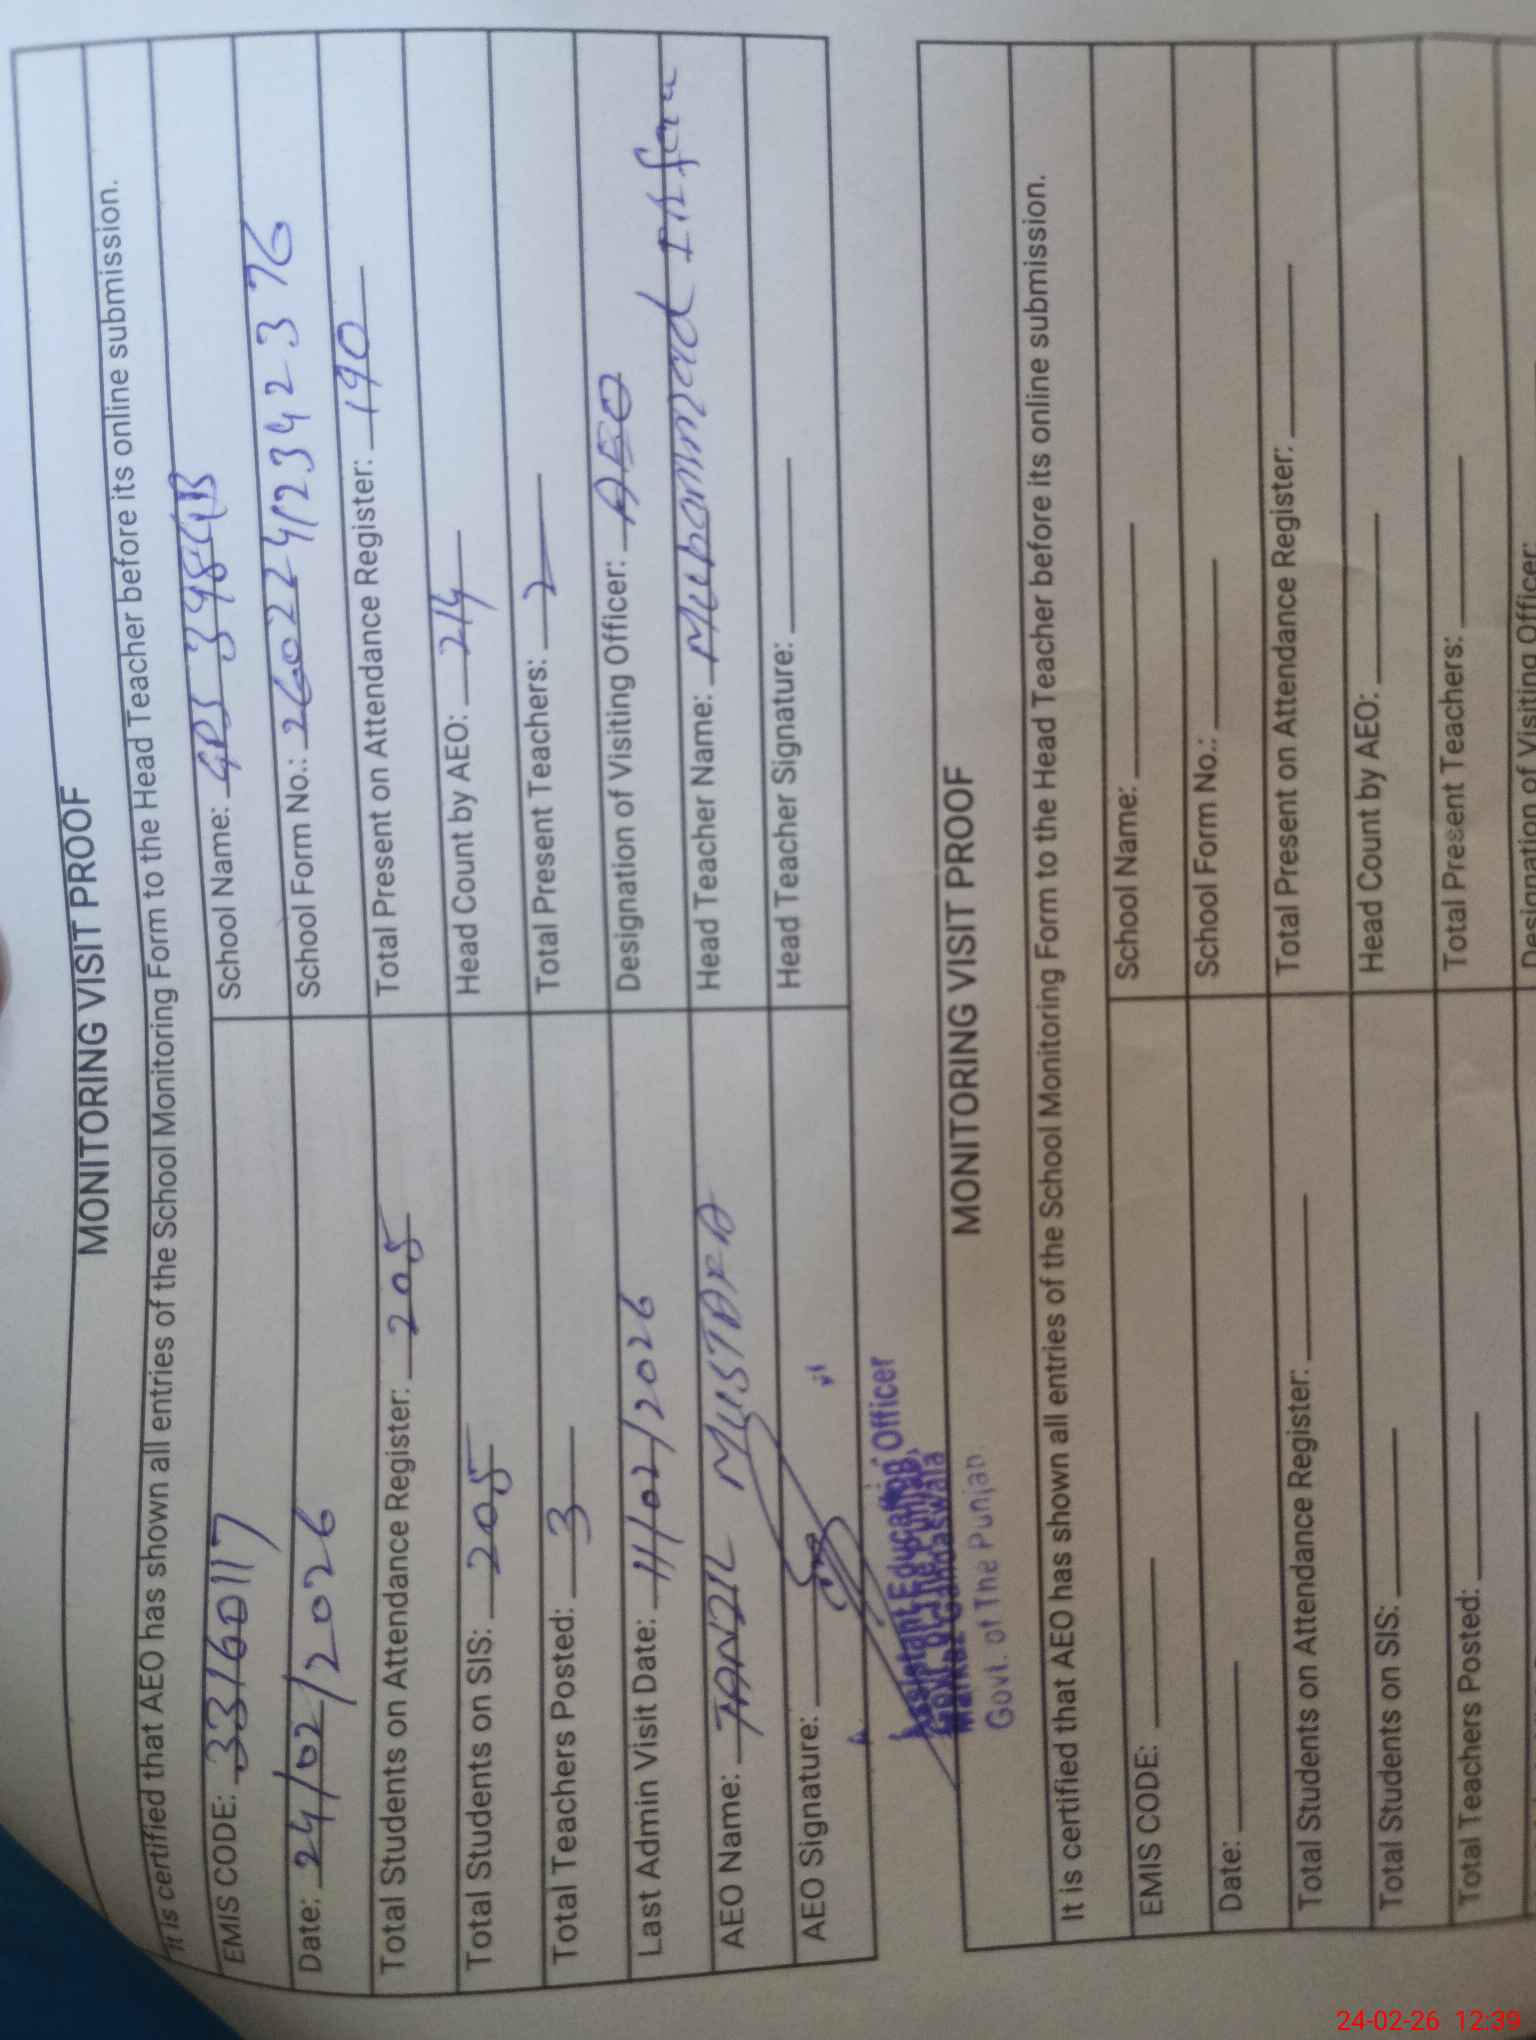 MONITORING VISIT PROOF
It is certified that AEO has shown all entries of the School Monitoring Form to the Head Teacher before its online submission.
EMIS CODE: 33160117 School Name: GPS 398GB
Date: 24/02/2026 School Form No.: 26022412342376
Total Students on Attendance Register: 205 Total Present on Attendance Register: 190
Total Students on SIS: 205 Head Count by AEO: 214
Total Teachers Posted: 3 Total Present Teachers: 2
Last Admin Visit Date: 11/02/2026 Designation of Visiting Officer: AEO
AEO Name: TANZIL MUSTAFA Head Teacher Name: Muhammad
AEO Signature: Head Teacher Signature:
Assistant Education Officer
Govt. of The Punjab
MONITORING VISIT PROOF
It is certified that AEO has shown all entries of the School Monitoring Form to the Head Teacher before its online submission.
EMIS CODE: School Name:
Date: School Form No.:
Total Students on Attendance Register: Total Present on Attendance Register:
Total Students on SIS: Head Count by AEO:
Total Teachers Posted: Total Present Teachers:
Designation of Visiting Officer:
24-02-26 12:39